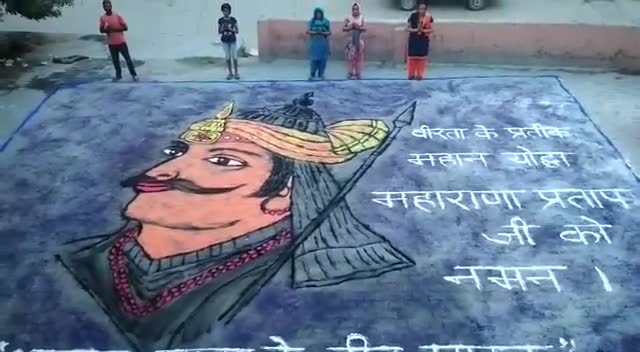 वीरता के प्रतीक
महान योद्धा
महाराणा प्रताप
जी को
नमन ।